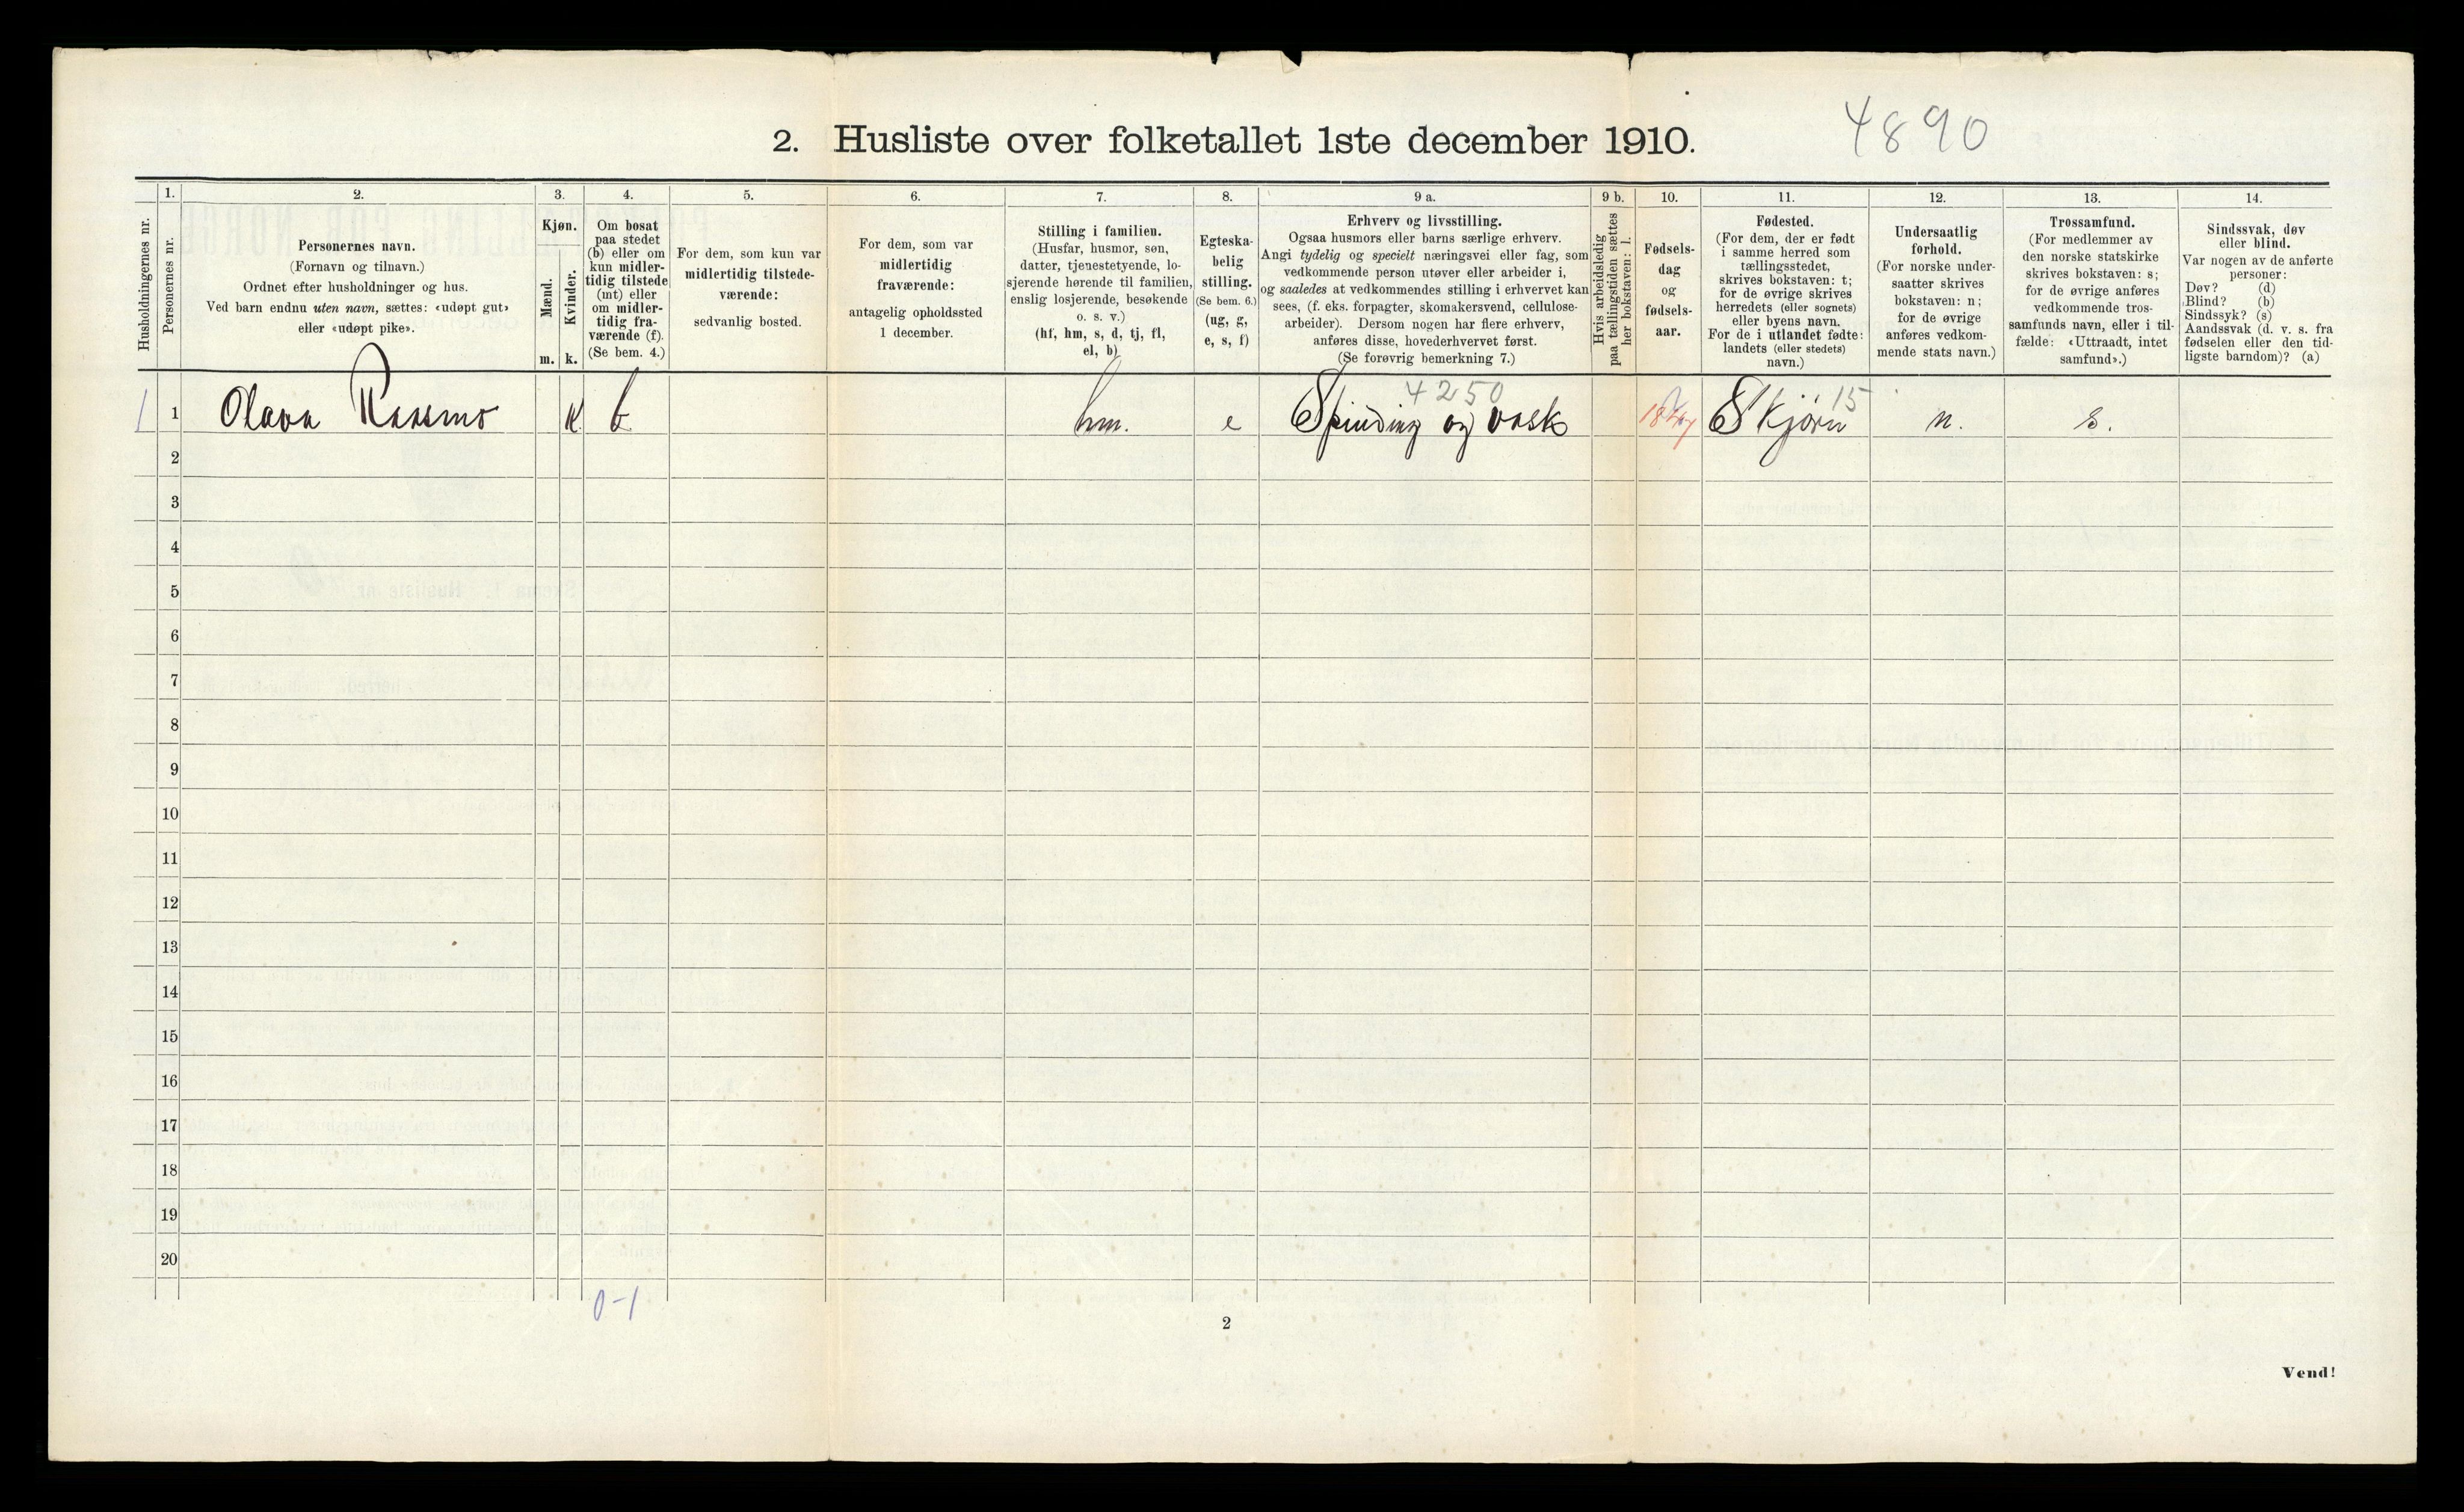 4890
2. Husliste over folketallet 1ste december 1910.
Husholdningernes nr.
1.
Personernes nr.
2.
Personernes navn.
(Fornavn og tilnavn.)
Ordnet efter husholdninger og hus.
Ved barn endnu uten navn, sættes: «udøpt gut»
eller «udøpt pike».
3.
Kjøn.
Mænd.
Kvinder.
m. k.
4.
Om bosat
paa stedet
(b) eller om
kun midler-
tidig tilstede
(mt) eller
om midler-
tidig fra-
værende (f).
(Se bem. 4.)
5.
For dem, som kun var
midlertidig tilstede-
værende:
sedvanlig bosted.
6.
For dem, som var
midlertidig
fraværende:
antagelig opholdssted
1 december.
7.
Stilling i familien.
(Husfar, husmor, søn,
datter, tjenestetyende, lo-
sjerende hørende til familien,
enslig losjerende, besøkende
o. s. v.)
(hf, hm, s, d, tj, fl,
el, b)
8.
Egteska-
belig
stilling.
(Se bem. 6.)
(ug, g,
e, s, f)
9 a.
Erhverv og livsstilling.
Ogsaa husmors eller barns særlige erhverv.
Angi tydelig og specielt næringsvei eller fag, som
vedkommende person utøver eller arbeider i,
og saaledes at vedkommendes stilling i erhvervet kan
sees, (f. eks. forpagter, skomakersvend, cellulose-
arbeider). Dersom nogen har flere erhverv,
anføres disse, hovederhvervet først.
(Se forøvrig bemerkning 7.)
9 b.
Hvis arbeidsledig
paa tællingstiden sættes
her bokstaven: l.
10.
Fødsels-
dag
og
fødsels-
aar.
11.
Fødested.
(For dem, der er født
i samme herred som
tællingsstedet,
skrives bokstaven: t;
for de øvrige skrives
herredets (eller sognets)
eller byens navn.
For de i utlandet fødte:
landets (eller stedets)
navn.)
12.
Undersaatlig
forhold.
(For norske under-
saatter skrives
bokstaven: n;
for de øvrige
anføres vedkom-
mende stats navn.)
13.
Trossamfund.
(For medlemmer av
den norske statskirke
skrives bokstaven: s;
for de øvrige anføres
vedkommende tros-
samfunds navn, eller i til-
fælde: «Uttraadt, intet
samfund».)
14.
Sindssvak, døv
eller blind.
Var nogen av de anførte
personer:
Døv? (d)
Blind? (b)
Sindssyk? (s)
Aandssvak (d. v. s. fra
fødselen eller den tid-
ligste barndom)? (a)
4250 15
1 1 Olava k b hm. e Spinding og vask Skjørn n. s.
2
3
4
5
6
7
8
9
10
11
12
13
14
15
16
17
18
19
20
0-1
2
Vend!